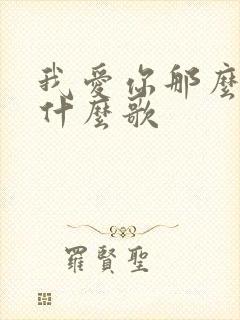 我愛你那麼
什麼歌
羅賢聖